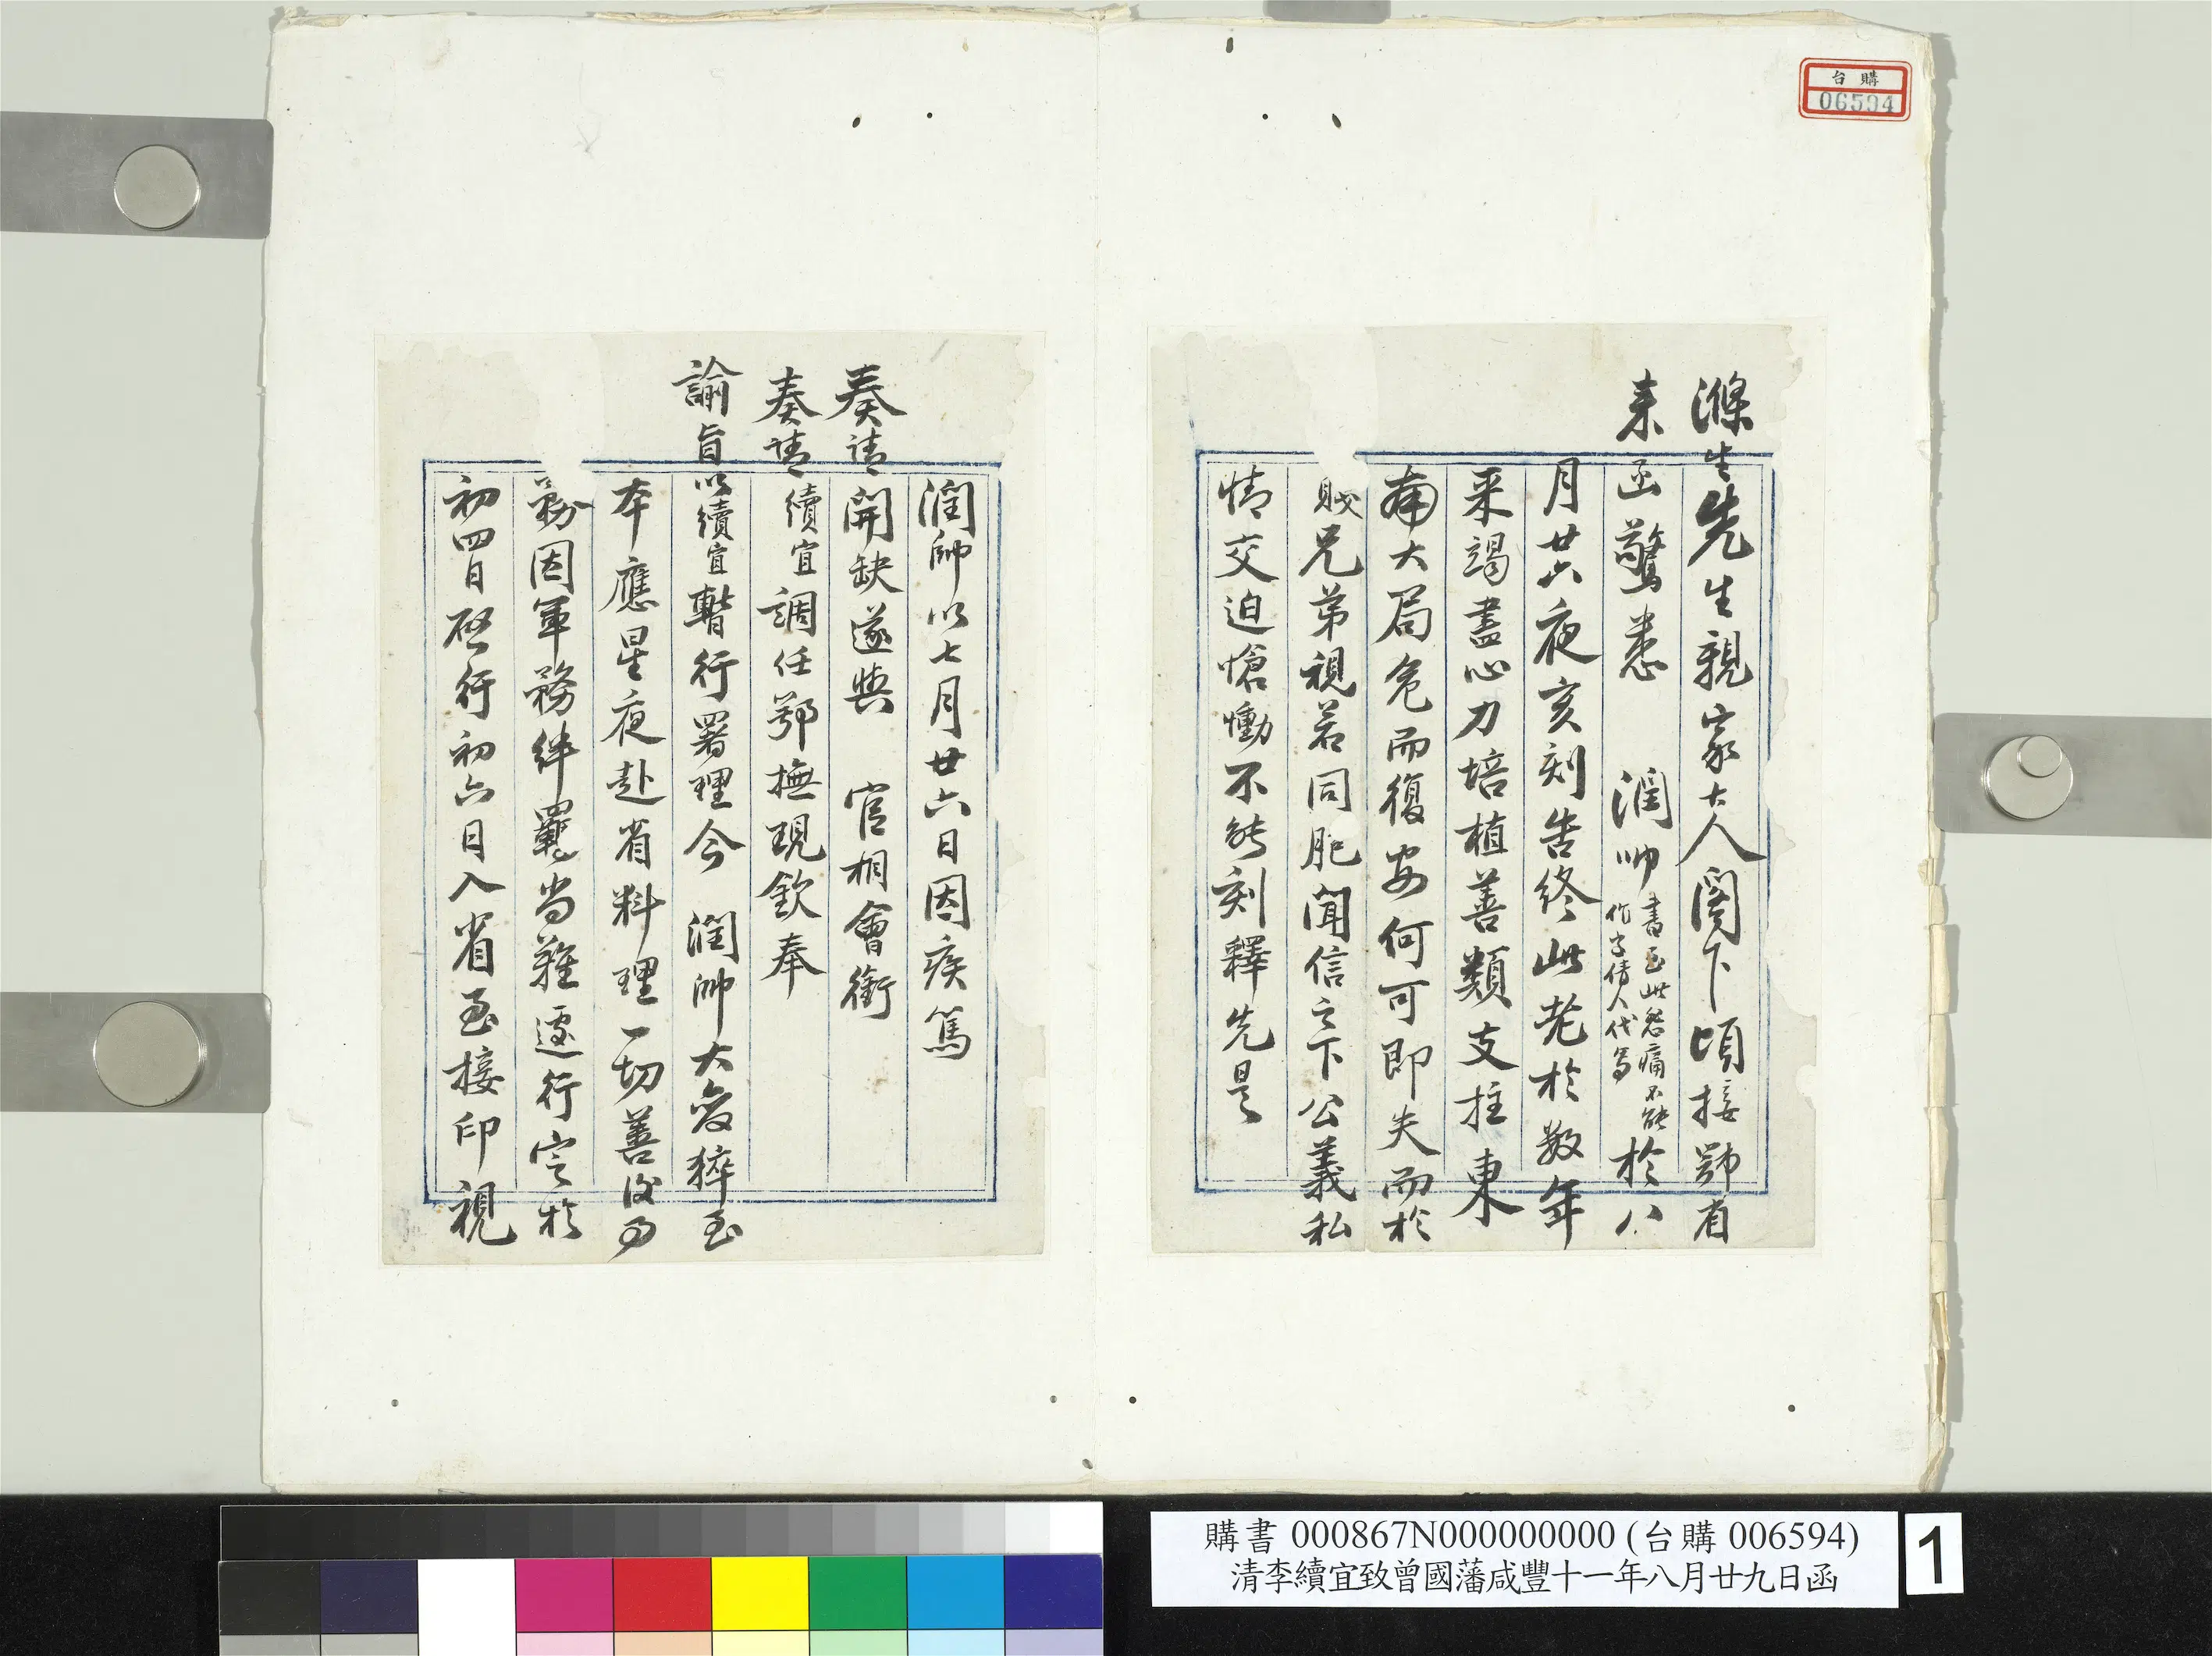 台購
06594
滌生先生親家大人閣下頃接鄂省
來函驚悉 潤帥書至此老痛不能作字倩人代寫於八
月廿六夜亥刻告終此老於數年
來竭盡心力培植善類支拄東
南大局危而復安何可即失而於
賤兄弟視若同胞聞信之下公義私
情交迫愴慟不能刻釋先是
潤帥以七月廿六日因疾篤
奏請開缺遂與 官相會銜
奏請續宜調任鄂撫現欽奉
諭旨以續宜暫行署理今 潤帥大變猝至
本應星夜赴省料理一切善後事
務因軍務絆羈尚難遽行定於
初四日啟行初六日入省至接印視
購書 000867N000000000 (台購 006594)
清李續宜致曾國藩咸豐十一年八月廿九日函
1